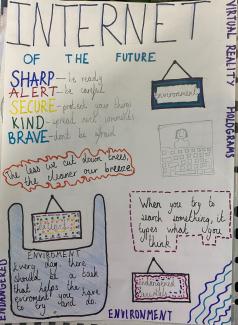 INTERNET
OF THE FUTURE
SHARP - is ready
ALERT - be careful
SECURE - protect your things
KIND - spread such comments
BRAVE - don't be afraid
environment
VIRTUAL REALITY HOLOGRAMS
The less we cut down trees
the cleaner our breeze
ENVIROMENT
Every day there
should be a task
that helps the
enviroment you have
to try and do.
When you try to
search something, it
types what you
think
endangered
animals
ENDANGERED
ENVIRONMENT